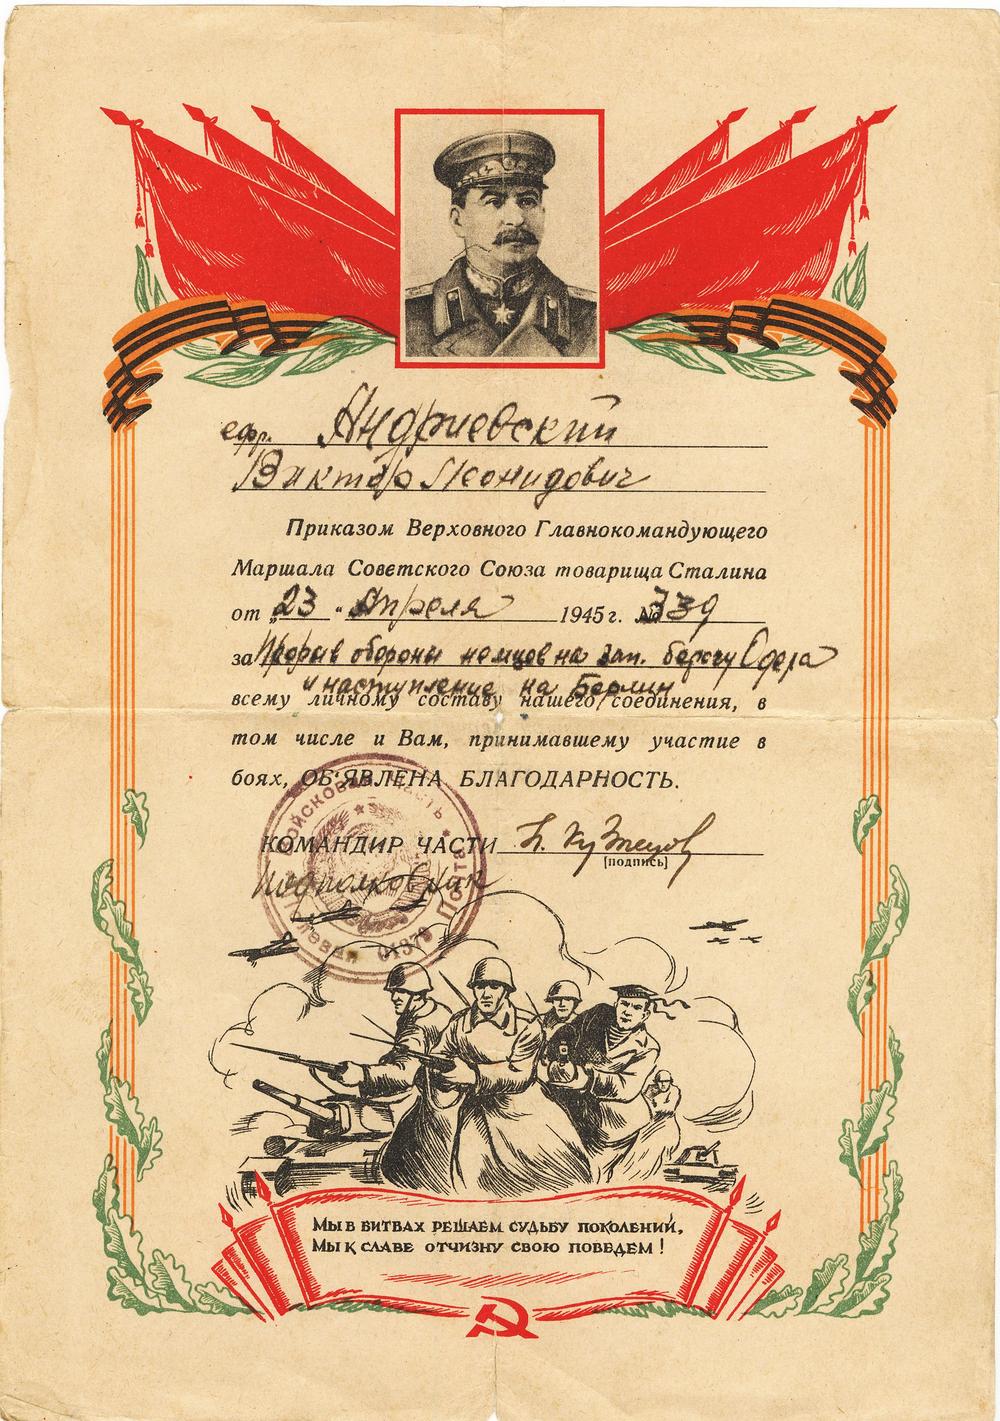 ефр. Андриевский
Виктор Леонидович
Приказом Верховного Главнокомандующего
Маршала Советского Союза товарища Сталина
от „23“ Апреля 1945 г. № 339
за Прорыв обороны немцев на зап. берегу Одера
и наступление на Берлин
всему личному составу нашего соединения, в
том числе и Вам, принимавшему участие в
боях, ОБ'ЯВЛЕНА БЛАГОДАРНОСТЬ.
КОМАНДИР ЧАСТИ Н. Кузнецов
[подпись]
подполковник
Войсковая часть
Полевая Почта
01379
МЫ В БИТВАХ РЕШАЕМ СУДЬБУ ПОКОЛЕНИЙ,
МЫ К СЛАВЕ ОТЧИЗНУ СВОЮ ПОВЕДЕМ!